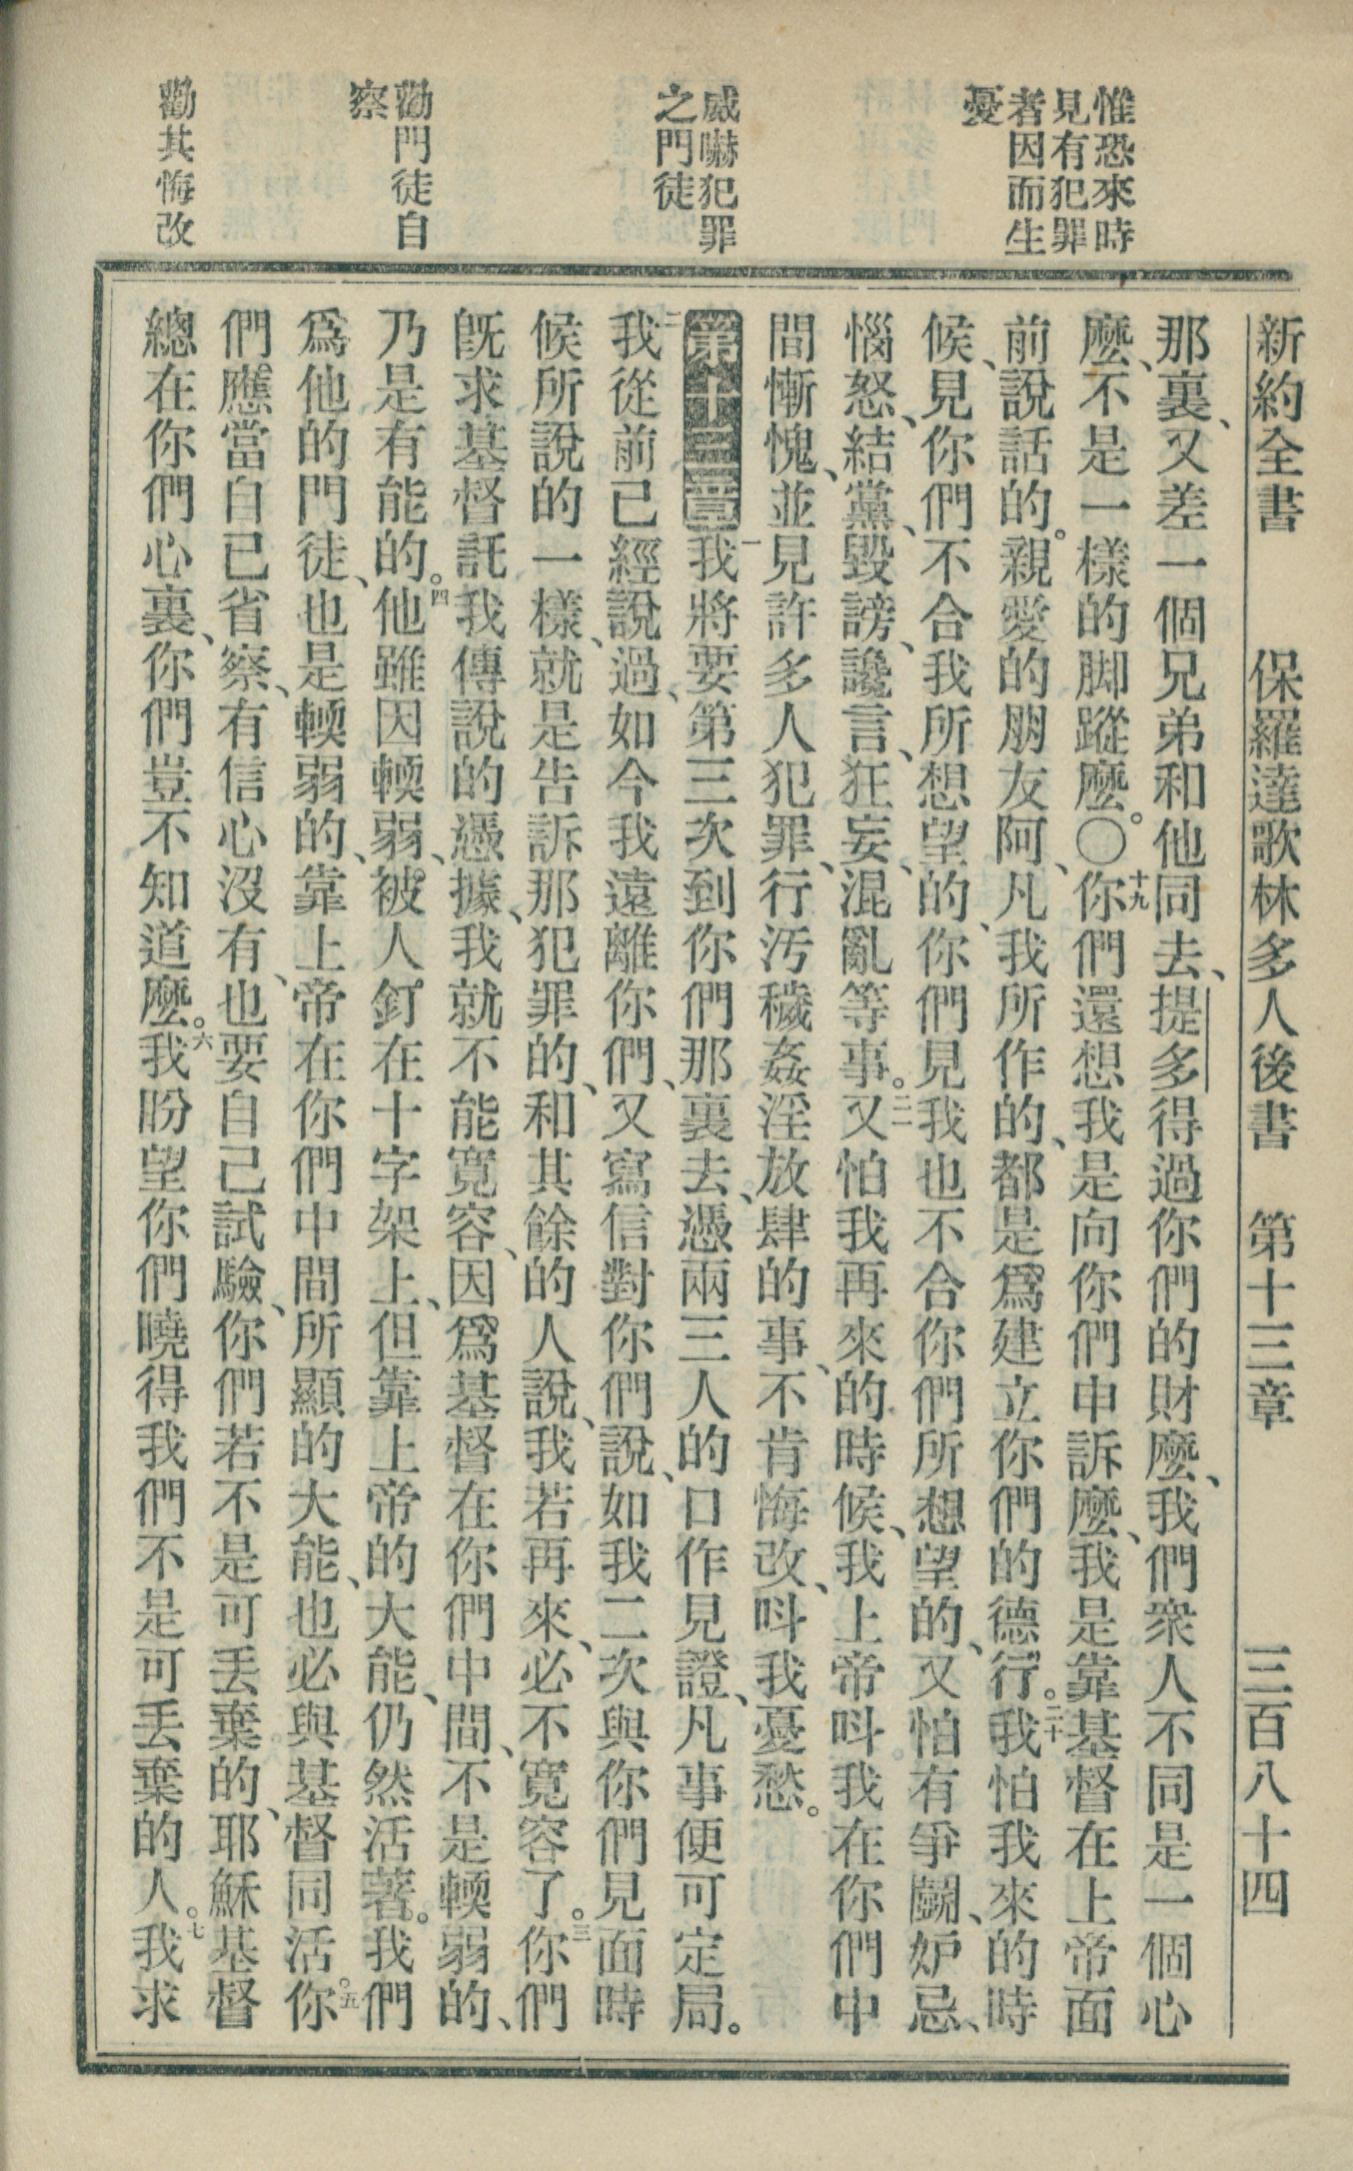 新約全書　保羅達歌林多人後書　第十三章　三百八十四
惟恐來時
見有犯罪
者因而生
憂
威嚇犯罪
之門徒
勸門徒自
察
勸其悔改
那裏、又差一個兄弟和他同去、提多得過你們的財麼、我們衆人不同是一個心
麼、不是一樣的脚蹤麼。〇十九你們還想我是向你們申訴麼、我是靠基督在上帝面
前說話的。親愛的朋友阿、凡我所作的、都是爲建立你們的德行。二十我怕我來的時
候、見你們不合我所想望的、你們見我也不合你們所想望的、又怕有爭鬭、妒忌、
惱怒、結黨、毀謗、讒言、狂妄、混亂等事。二一又怕我再來的時候、我上帝呌我在你們中
間慚愧、並見許多人犯罪、行汚穢姦淫放肆的事、不肯悔改、呌我憂愁。
第十三章一我將要第三次到你們那裏去、憑兩三人的口作見證、凡事便可定局。
二我從前已經說過、如今我遠離你們、又寫信對你們說、如我二次與你們見面時
候所說的一樣、就是告訴那犯罪的、和其餘的人說、我若再來、必不寬容了。三你們
旣求基督託我傳說的憑據、我就不能寬容、因爲基督在你們中間、不是輭弱的、
乃是有能的。四他雖因輭弱、被人釘在十字架上、但靠上帝的大能、仍然活著。我們
爲他的門徒、也是輭弱的、靠上帝在你們中間所顯的大能、也必與基督同活。五你
們應當自已省察、有信心沒有、也要自己試驗、你們若不是可丟棄的、耶穌基督
總在你們心裏、你們豈不知道麼。六我盼望你們曉得我們不是可丟棄的人。七我求